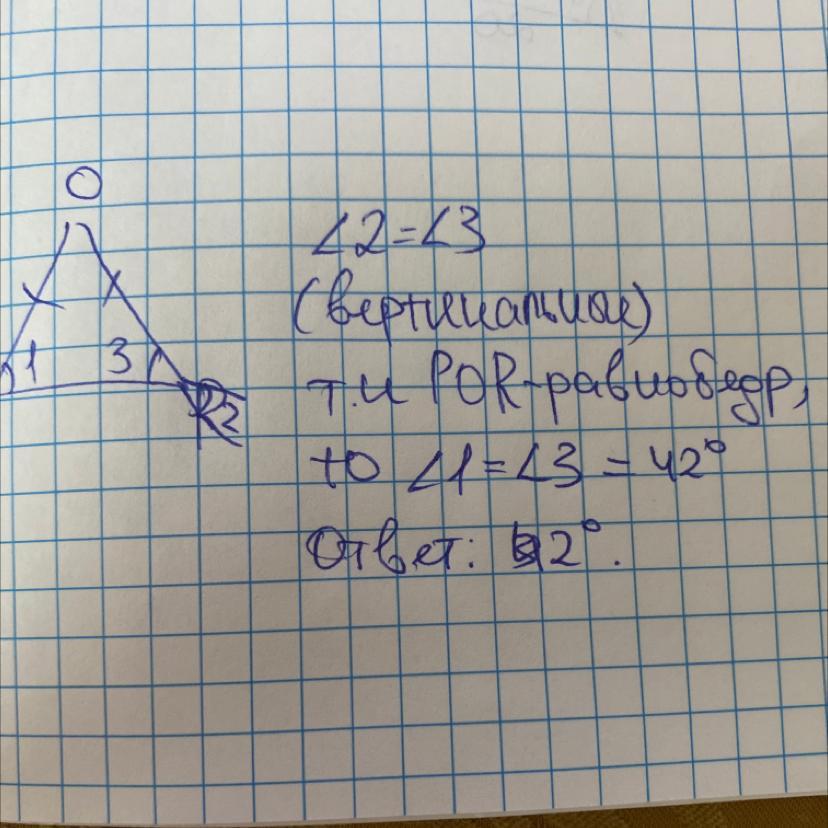 O
1 3
2
∠2=∠3
(вертикальные)
т.к POR-равнобедр,
то ∠1=∠3=42°
Ответ: 42°.